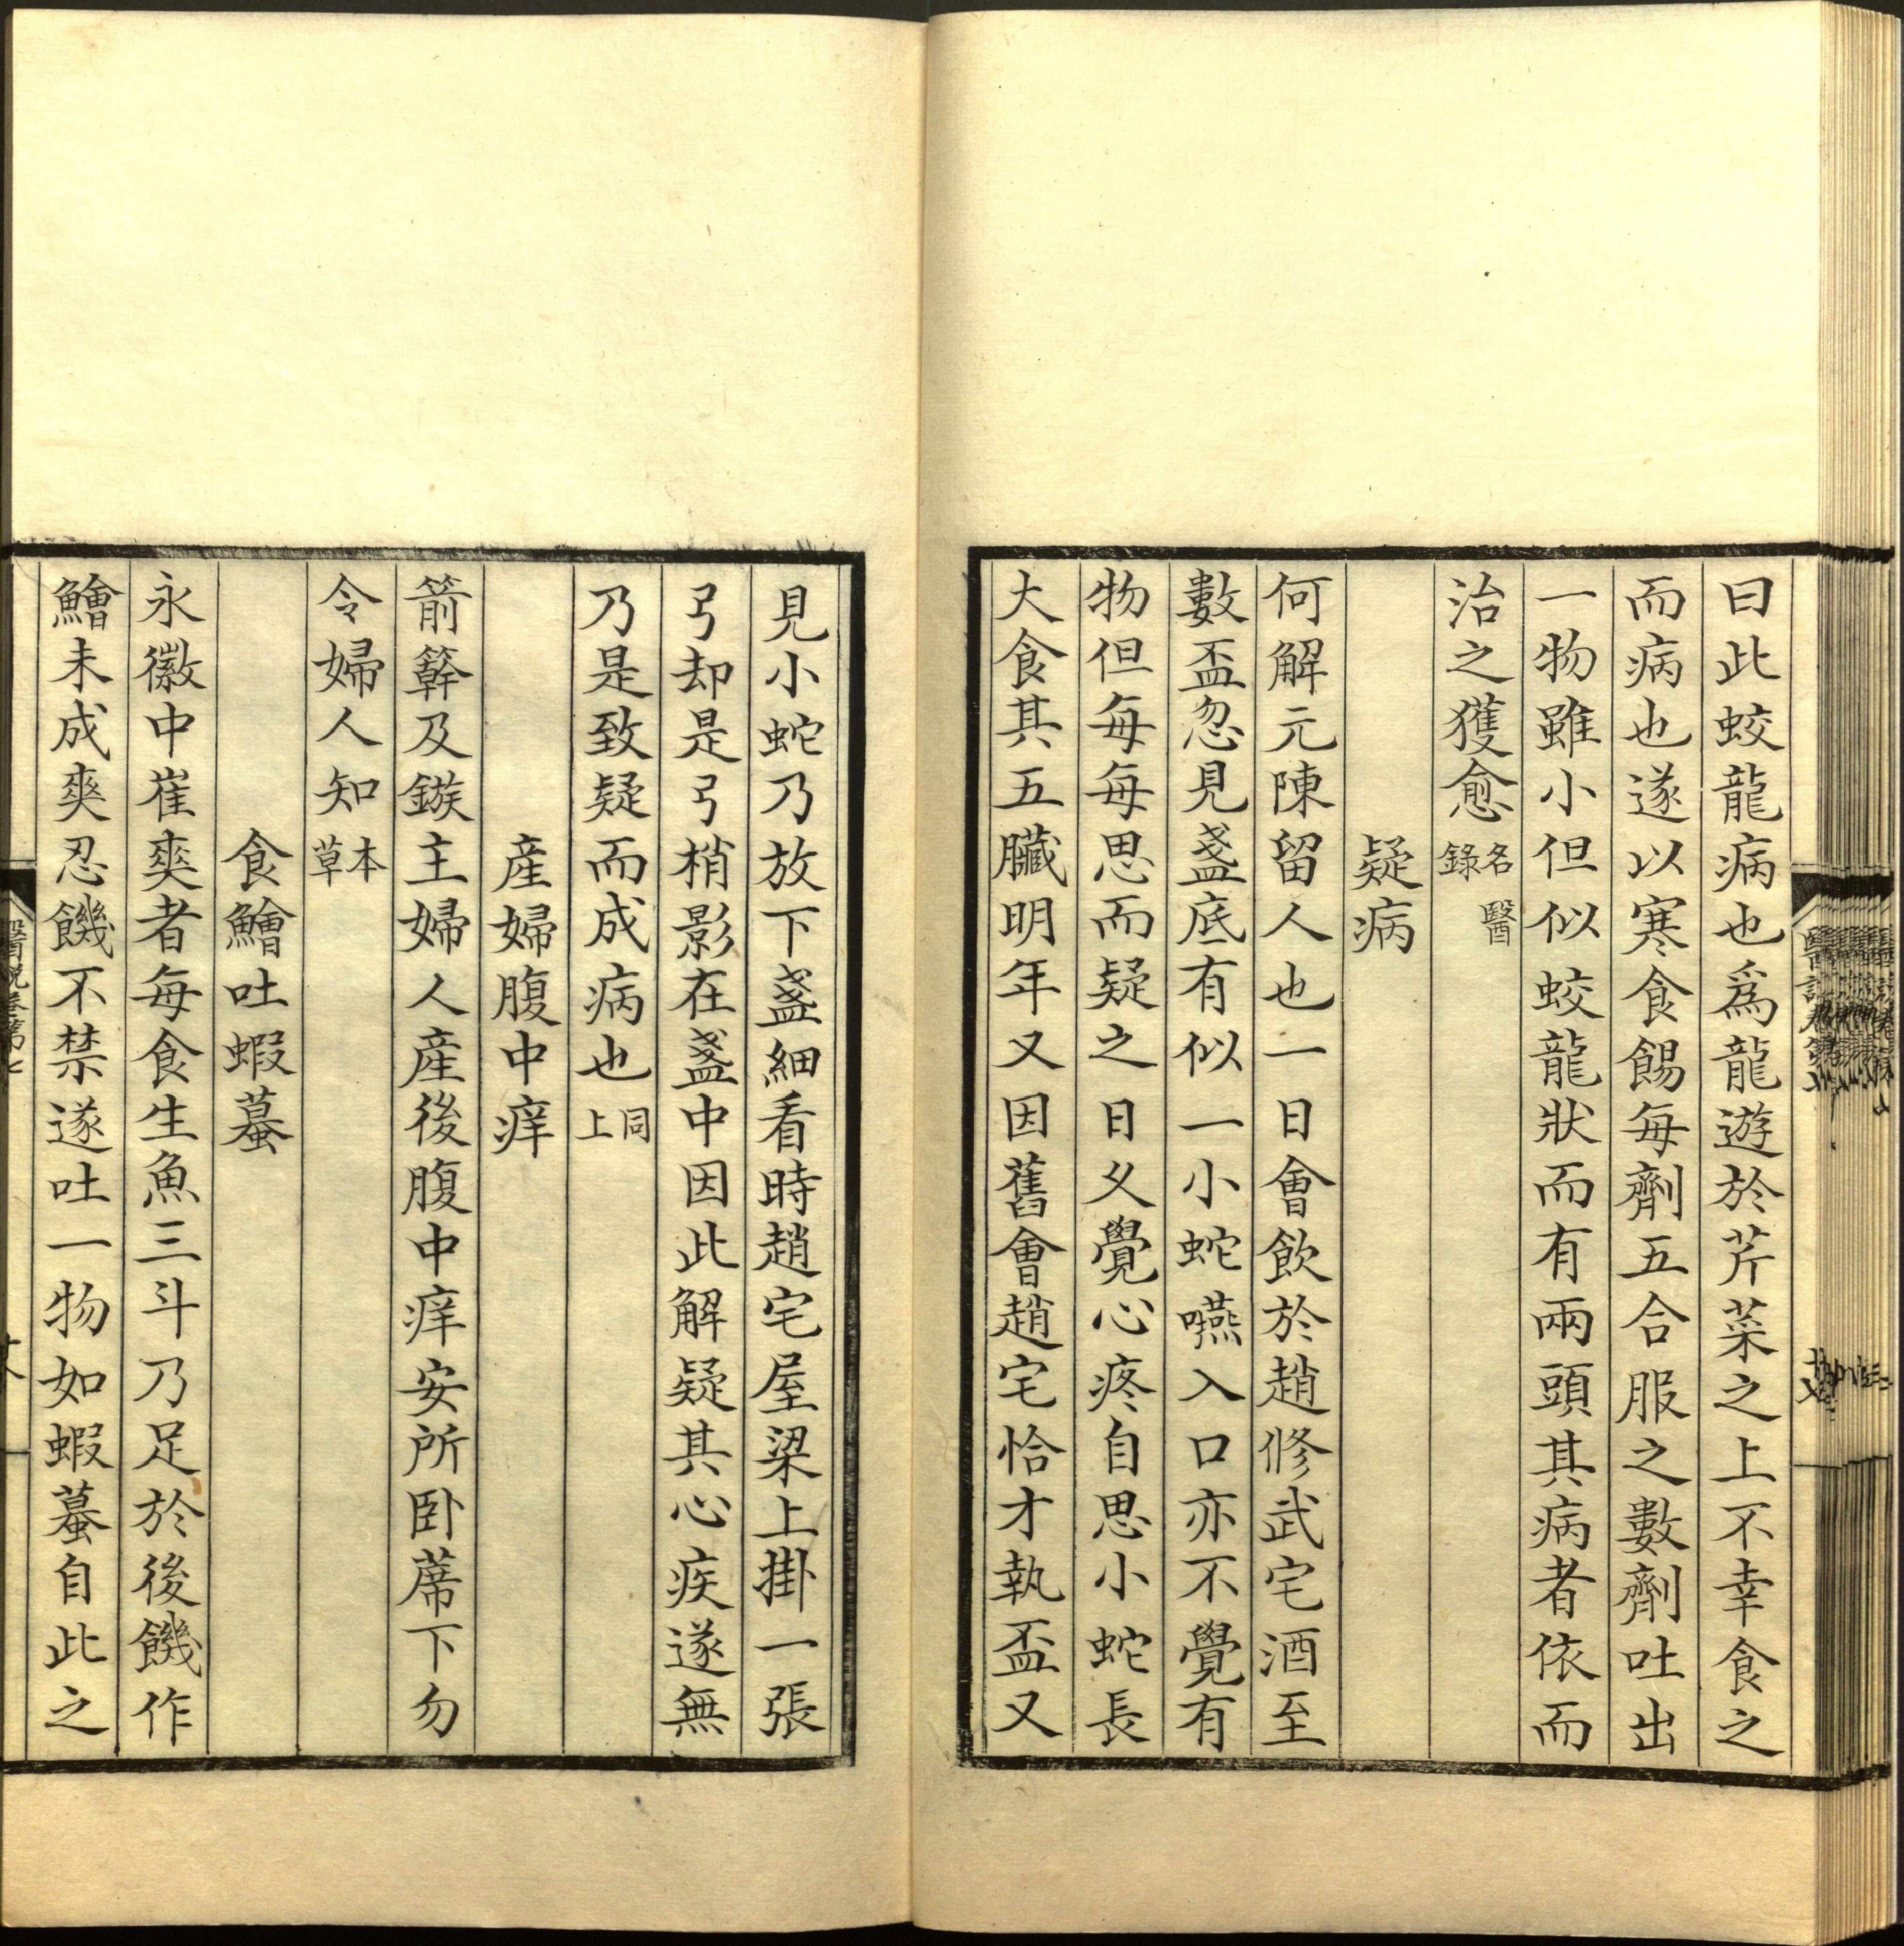 曰此蛟龍病也爲龍遊於芹菜之上不幸食之
而病也遂以寒食餳每劑五合服之數劑吐出
一物雖小但似蛟龍狀而有兩頭其病者依而
治之獲愈名醫錄
疑病
何解元陳留人也一日會飲於趙修武宅酒至
數盃忽見盞底有似一小蛇嚥入口亦不覺有
物但每每思而疑之日久覺心疼自思小蛇長
大食其五臟明年又因舊會趙宅恰才執盃又
見小蛇乃放下盞細看時趙宅屋梁上掛一張
弓却是弓梢影在盞中因此解疑其心疾遂無
乃是致疑而成病也同上
産婦腹中痒
箭簳及鏃主婦人産後腹中痒安所卧蓆下勿
令婦人知本草
食鱠吐蝦蟇
永徽中崔爽者每食生魚三斗乃足於後饑作
鱠未成爽忍饑不禁遂吐一物如蝦蟇自此之
醫說卷第七